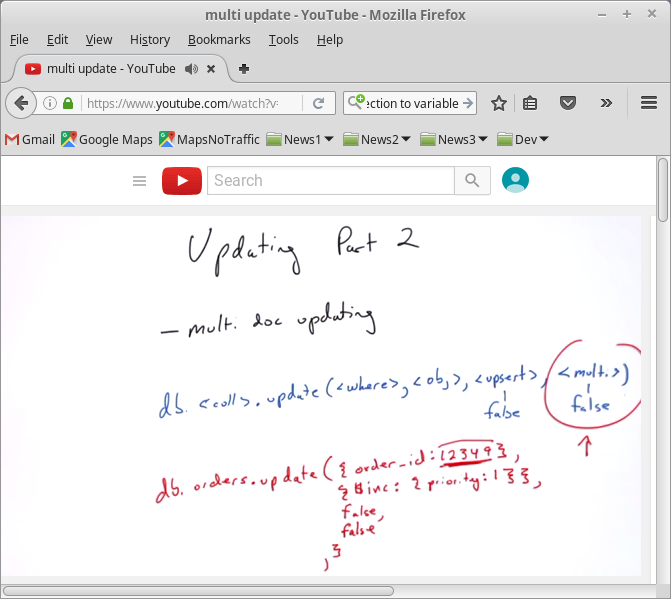 multi update - YouTube - Mozilla Firefox
File Edit View History Bookmarks Tools Help
multi update - YouTube
https://www.youtube.com/watch?v= ection to variable
Gmail Google Maps MapsNoTraffic News1 News2 News3 Dev
Search
Updating Part 2
— multi doc updating
db. <coll>.update(<where>, <obj>, <upsert>, <multi>)
false false
db. orders.update({order_id:12349},
{$inc: {priority:1}},
false,
false
,}